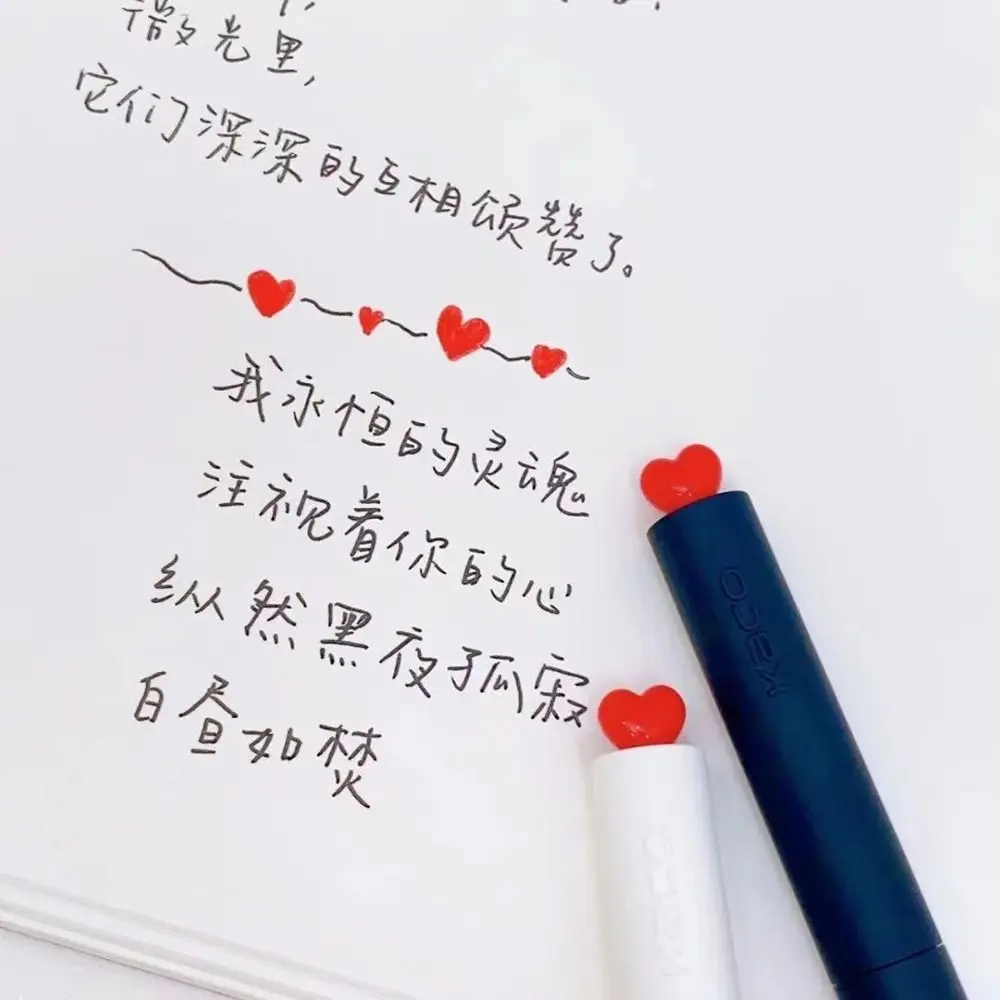 微光里，
它们深深的互相颂赞了。
我永恒的灵魂
注视着你的心
纵然黑夜孤寂
白昼如焚
kaco
kaco